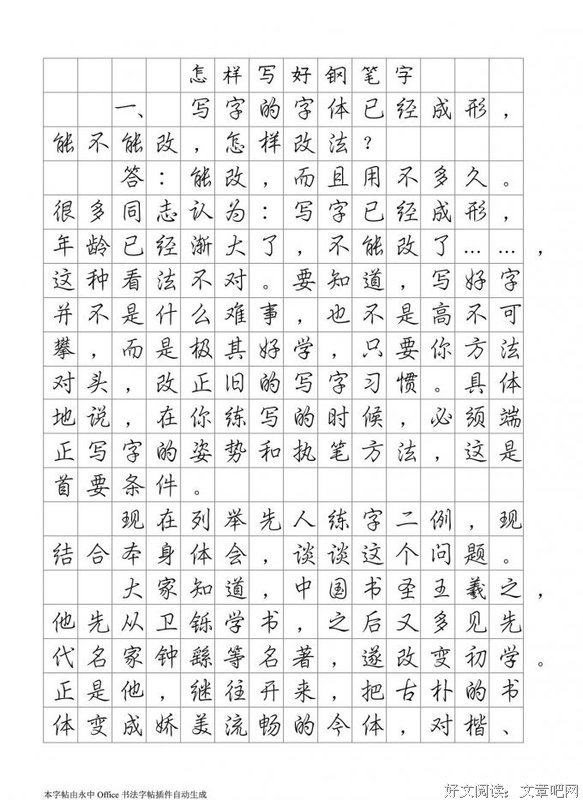 怎样写好钢笔字
一、 写字的字体已经成形，
能不能改，怎样改法？
答：能改，而且用不多久。
很多同志认为：写字已经成形，
年龄已经渐大了，不能改了……，
这种看法不对。要知道，写好字
并不是什么难事，也不是高不可
攀，而是极其好学，只要你方法
对头，改正旧的写字习惯。具体
地说，在你练写的时候，必须端
正写字的姿势和执笔方法，这是
首要条件。
现在列举先人练字二例，现
结合本身体会，谈谈这个问题。
大家知道，中国书圣王羲之，
他先从卫铄学书，之后又多见先
代名家钟繇等名著，遂改变初学。
正是他，继往开来，把古朴的书
体变成娇美流畅的今体，对楷、
本字帖由永中Office书法字帖插件自动生成
好文阅读：文章吧网